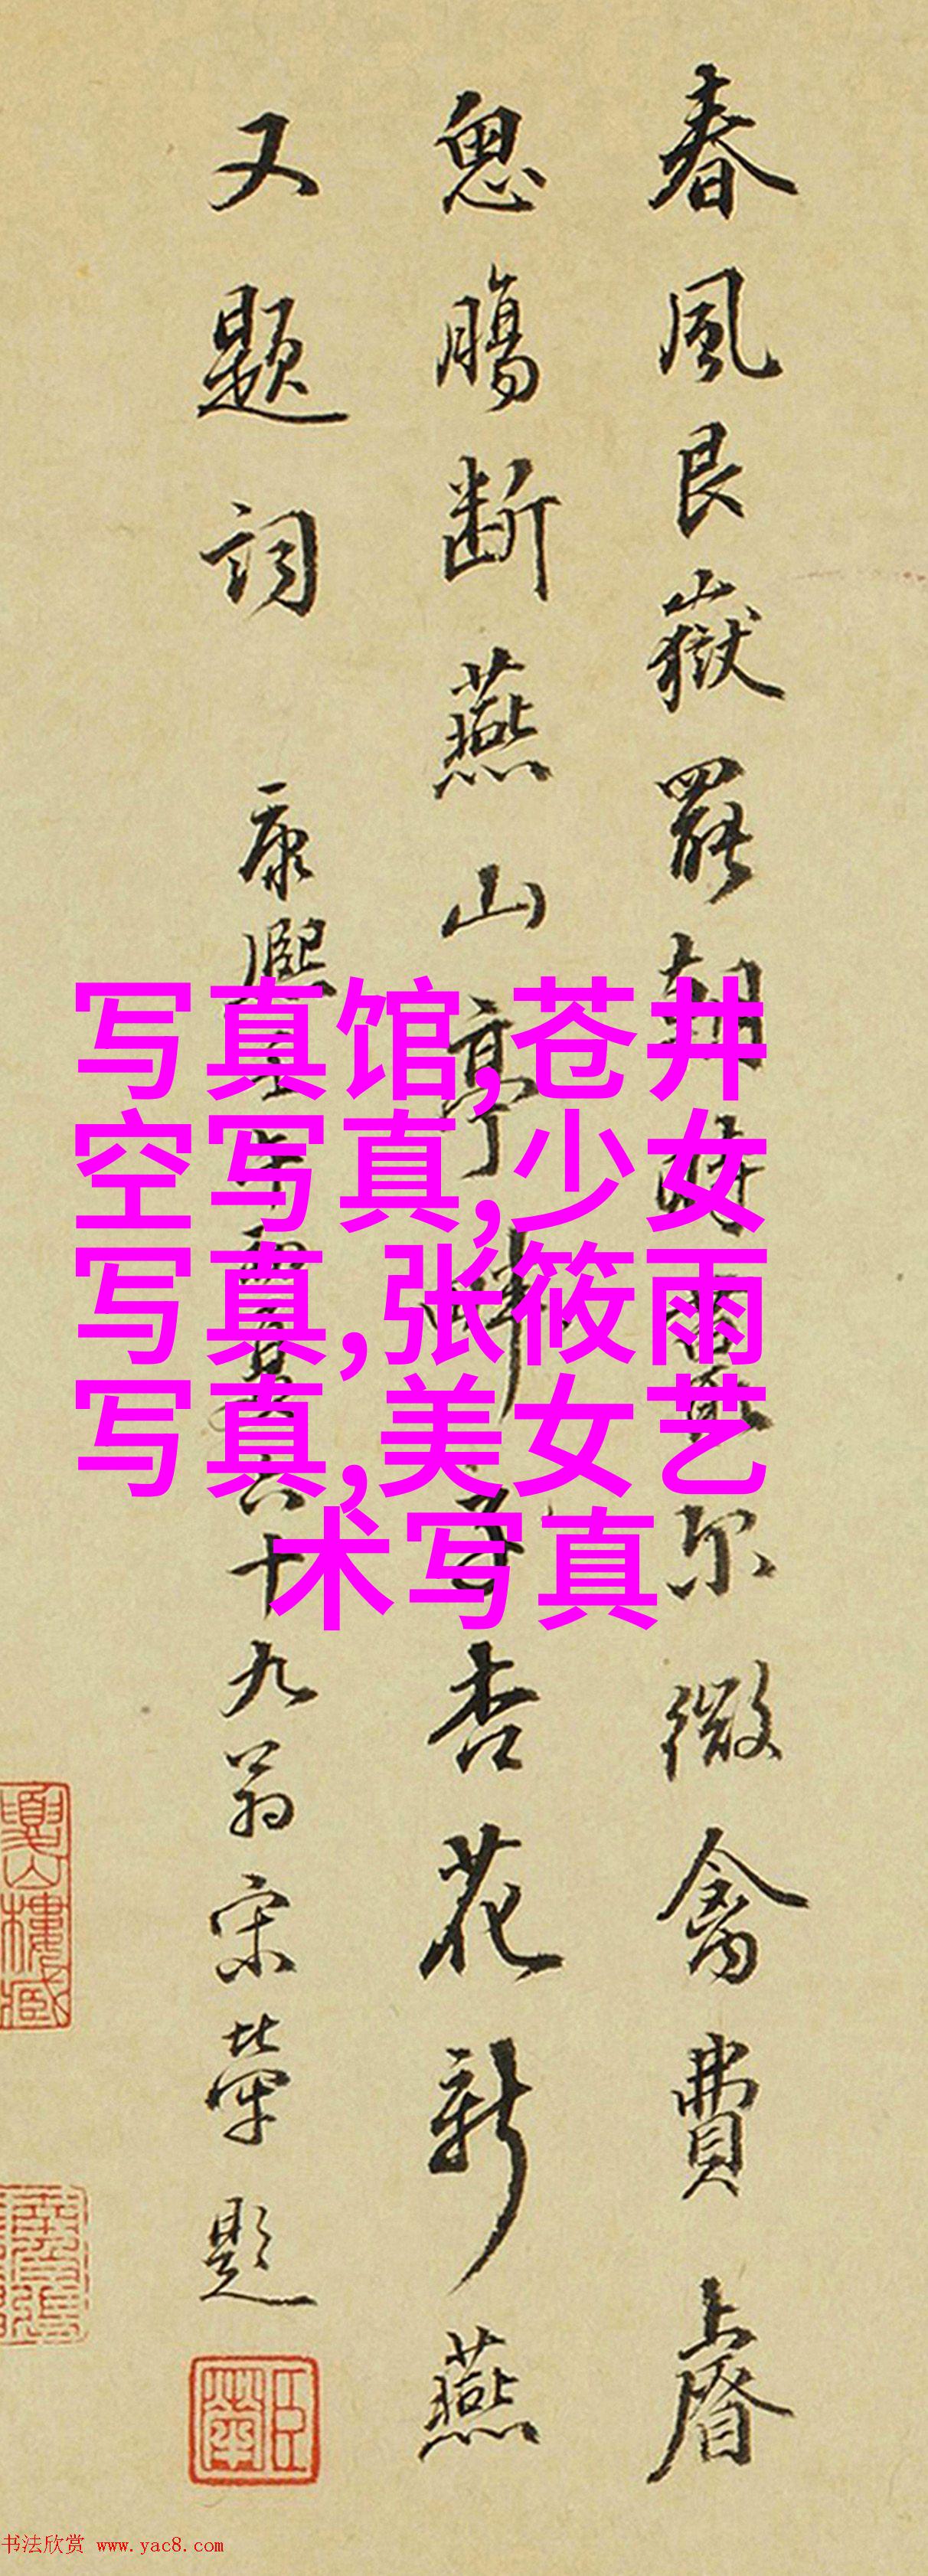 春風艮嶽罷朝尔微禽費上睿
思腸斷燕山亭畔杏花新燕
又題詞 康熙六十九翁宋犖題
臣犖
写真馆,苍井
空写真,少女
写真,张筱雨
写真,美女艺
术写真
书法欣赏 www.yac8.com